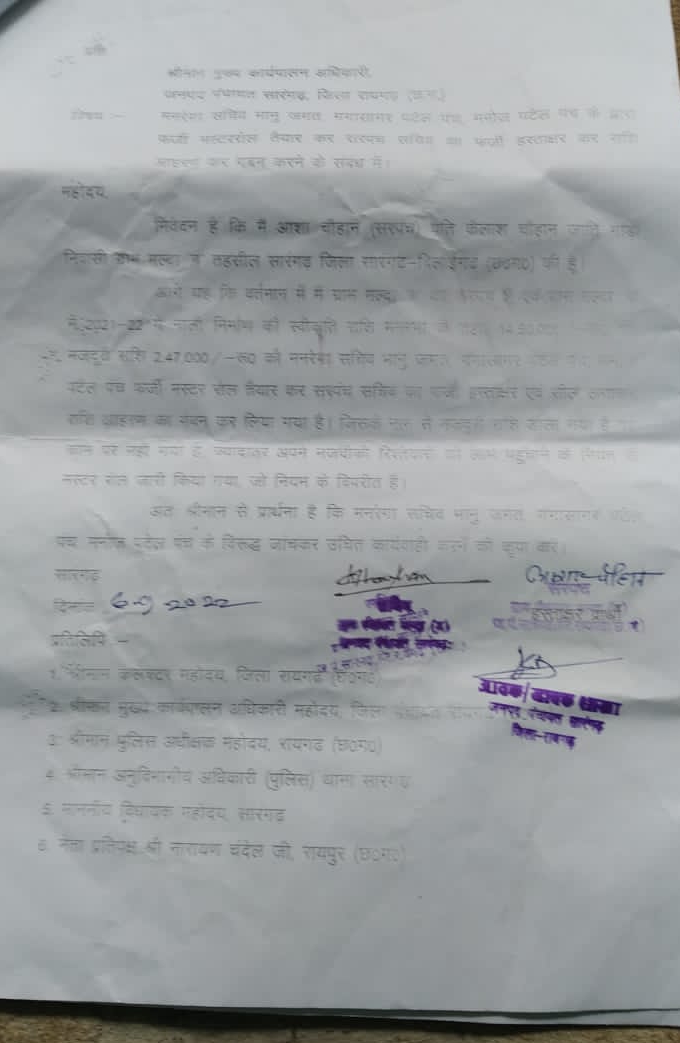 प्रति,
श्रीमान मुख्य कार्यपालन अधिकारी,
जनपद पंचायत सारंगढ़, जिला रायगढ़ (छ.ग.)
विषय :- मनरेगा सचिव भानु जगत गंगासागर पटेल पंच, मनोज पटेल पंच के द्वारा
फर्जी मस्टररोल तैयार कर सरपंच सचिव का फर्जी हस्ताक्षर कर राशि
आहरण कर गबन करने के संबंध में।
महोदय,
निवेदन है कि मैं आशा चौहान (सरपंच) पति कैलाश चौहान जाति
निवासी ग्राम तहसील सारंगढ़ जिला सारंगढ़-बिलाईगढ़ (छ०ग०) की हूं।
आगे यह कि वर्तमान में मैं ग्राम
में 2021-22 में नाली निर्माण की स्वीकृति राशि
मजदूरी राशि 2,47,000/-रू० को मनरेगा सचिव भानु जगत गंगासागर पटेल पंच
पटेल पंच फर्जी मस्टर रोल तैयार कर सरपंच सचिव का फर्जी हस्ताक्षर एवं सील लगाकर
राशि आहरण का गबन कर लिया गया है। जिसके नाम से मजदूरी राशि डाला गया है
काम पर नहीं गया है, ज्यादातर अपने नजदीकी रिश्तेदारों को लाभ पहुंचाने के
मस्टर रोल जारी किया गया, जो नियम के विपरीत है।
अतः श्रीमान से प्रार्थना है कि मनरेगा सचिव भानु जगत गंगासागर पटेल
पंच मनोज पटेल पंच के विरुद्ध जांचकर उचित कार्यवाही करने की कृपा करें।
सारंगढ़
दिनांक 6-9-2022
सचिव
सरपंच
हस्ताक्षर प्रार्थी
प्रतिलिपि :-
1. श्रीमान कलेक्टर महोदय, जिला रायगढ़ (छ०ग०)
आवक/जावक शाखा
जनपद पंचायत सारंगढ़
जिला-रायगढ़
2. श्रीमान मुख्य कार्यपालन अधिकारी महोदय, जिला पंचायत रायगढ़
3. श्रीमान पुलिस अधीक्षक महोदय, रायगढ़ (छ०ग०)
4. श्रीमान अनुविभागीय अधिकारी (पुलिस) थाना सारंगढ़
5. माननीय विधायक महोदय, सारंगढ़
6. नेता प्रतिपक्ष श्री नारायण चंदेल जी, रायपुर (छ०ग०)